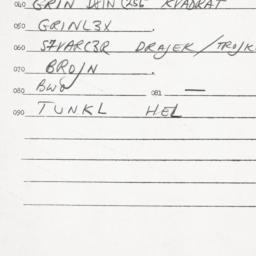 040 GRIN DXIN(256 KVADRAT
050 GRINLEX .
060 SZVARC3R DRAJEK / TROJK
070 BROJN .
080 BWO 081 —
090 TUNKL HEL